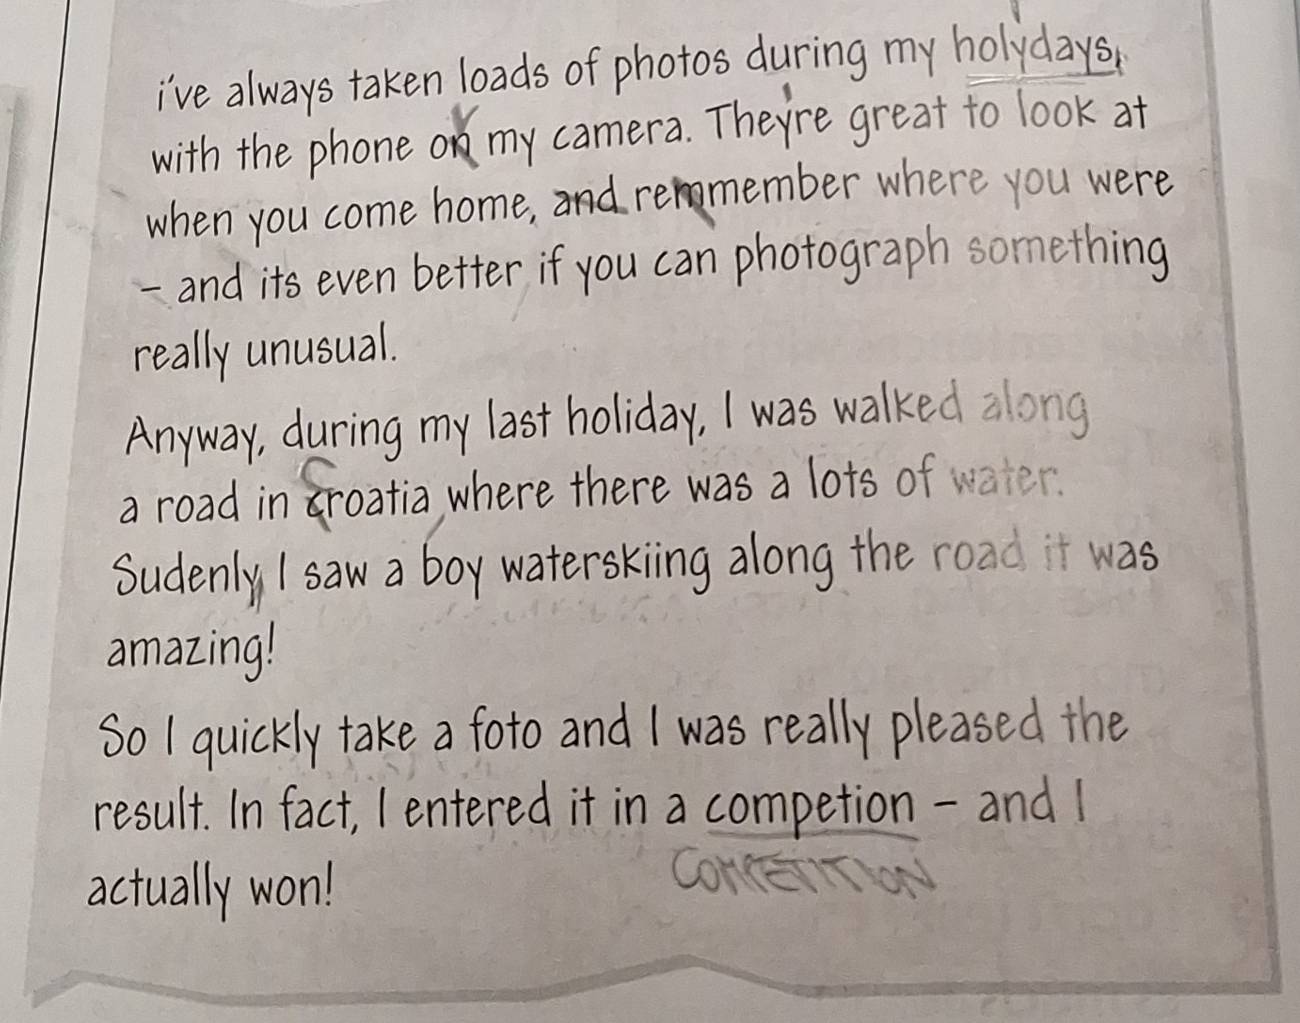 i've always taken loads of photos during my holydays,
with the phone on my camera. They're great to look at
when you come home, and remmember where you were
- and its even better if you can photograph something
really unusual.
Anyway, during my last holiday, I was walked along
a road in croatia where there was a lots of water.
Sudenly I saw a boy waterskiing along the road it was
amazing!
So I quickly take a foto and I was really pleased the
result. In fact, I entered it in a competion - and I
COMPETITION
actually won!